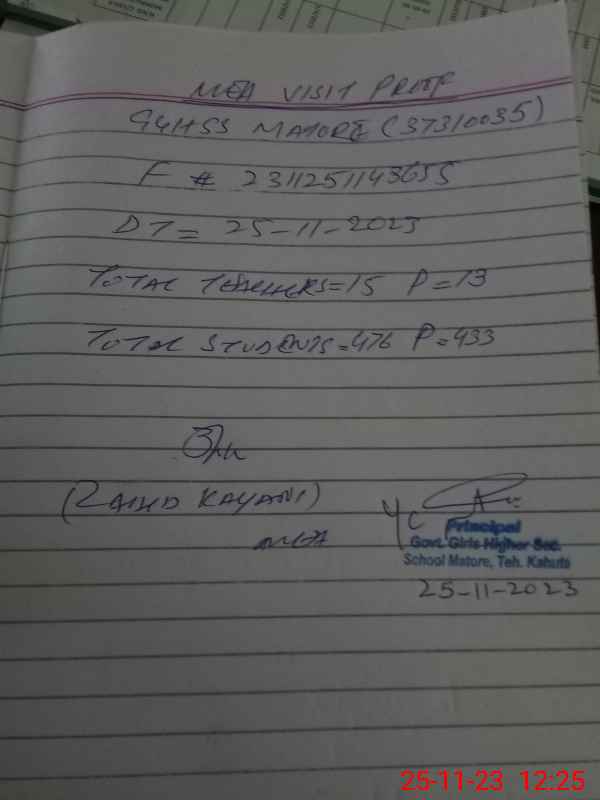 MEA VISIT PROOF
GGHSS MATORE (37310035)
F # 2311251143655
DT = 25-11-2023
TOTAL TEACHERS=15 P=13
TOTAL STUDENTS=476 P=433
(ZAHID KAYANI)
MEA
Principal
Govt. Girls Higher Sec.
School Matore, Teh. Kahuta
25-11-2023
25-11-23 12:25